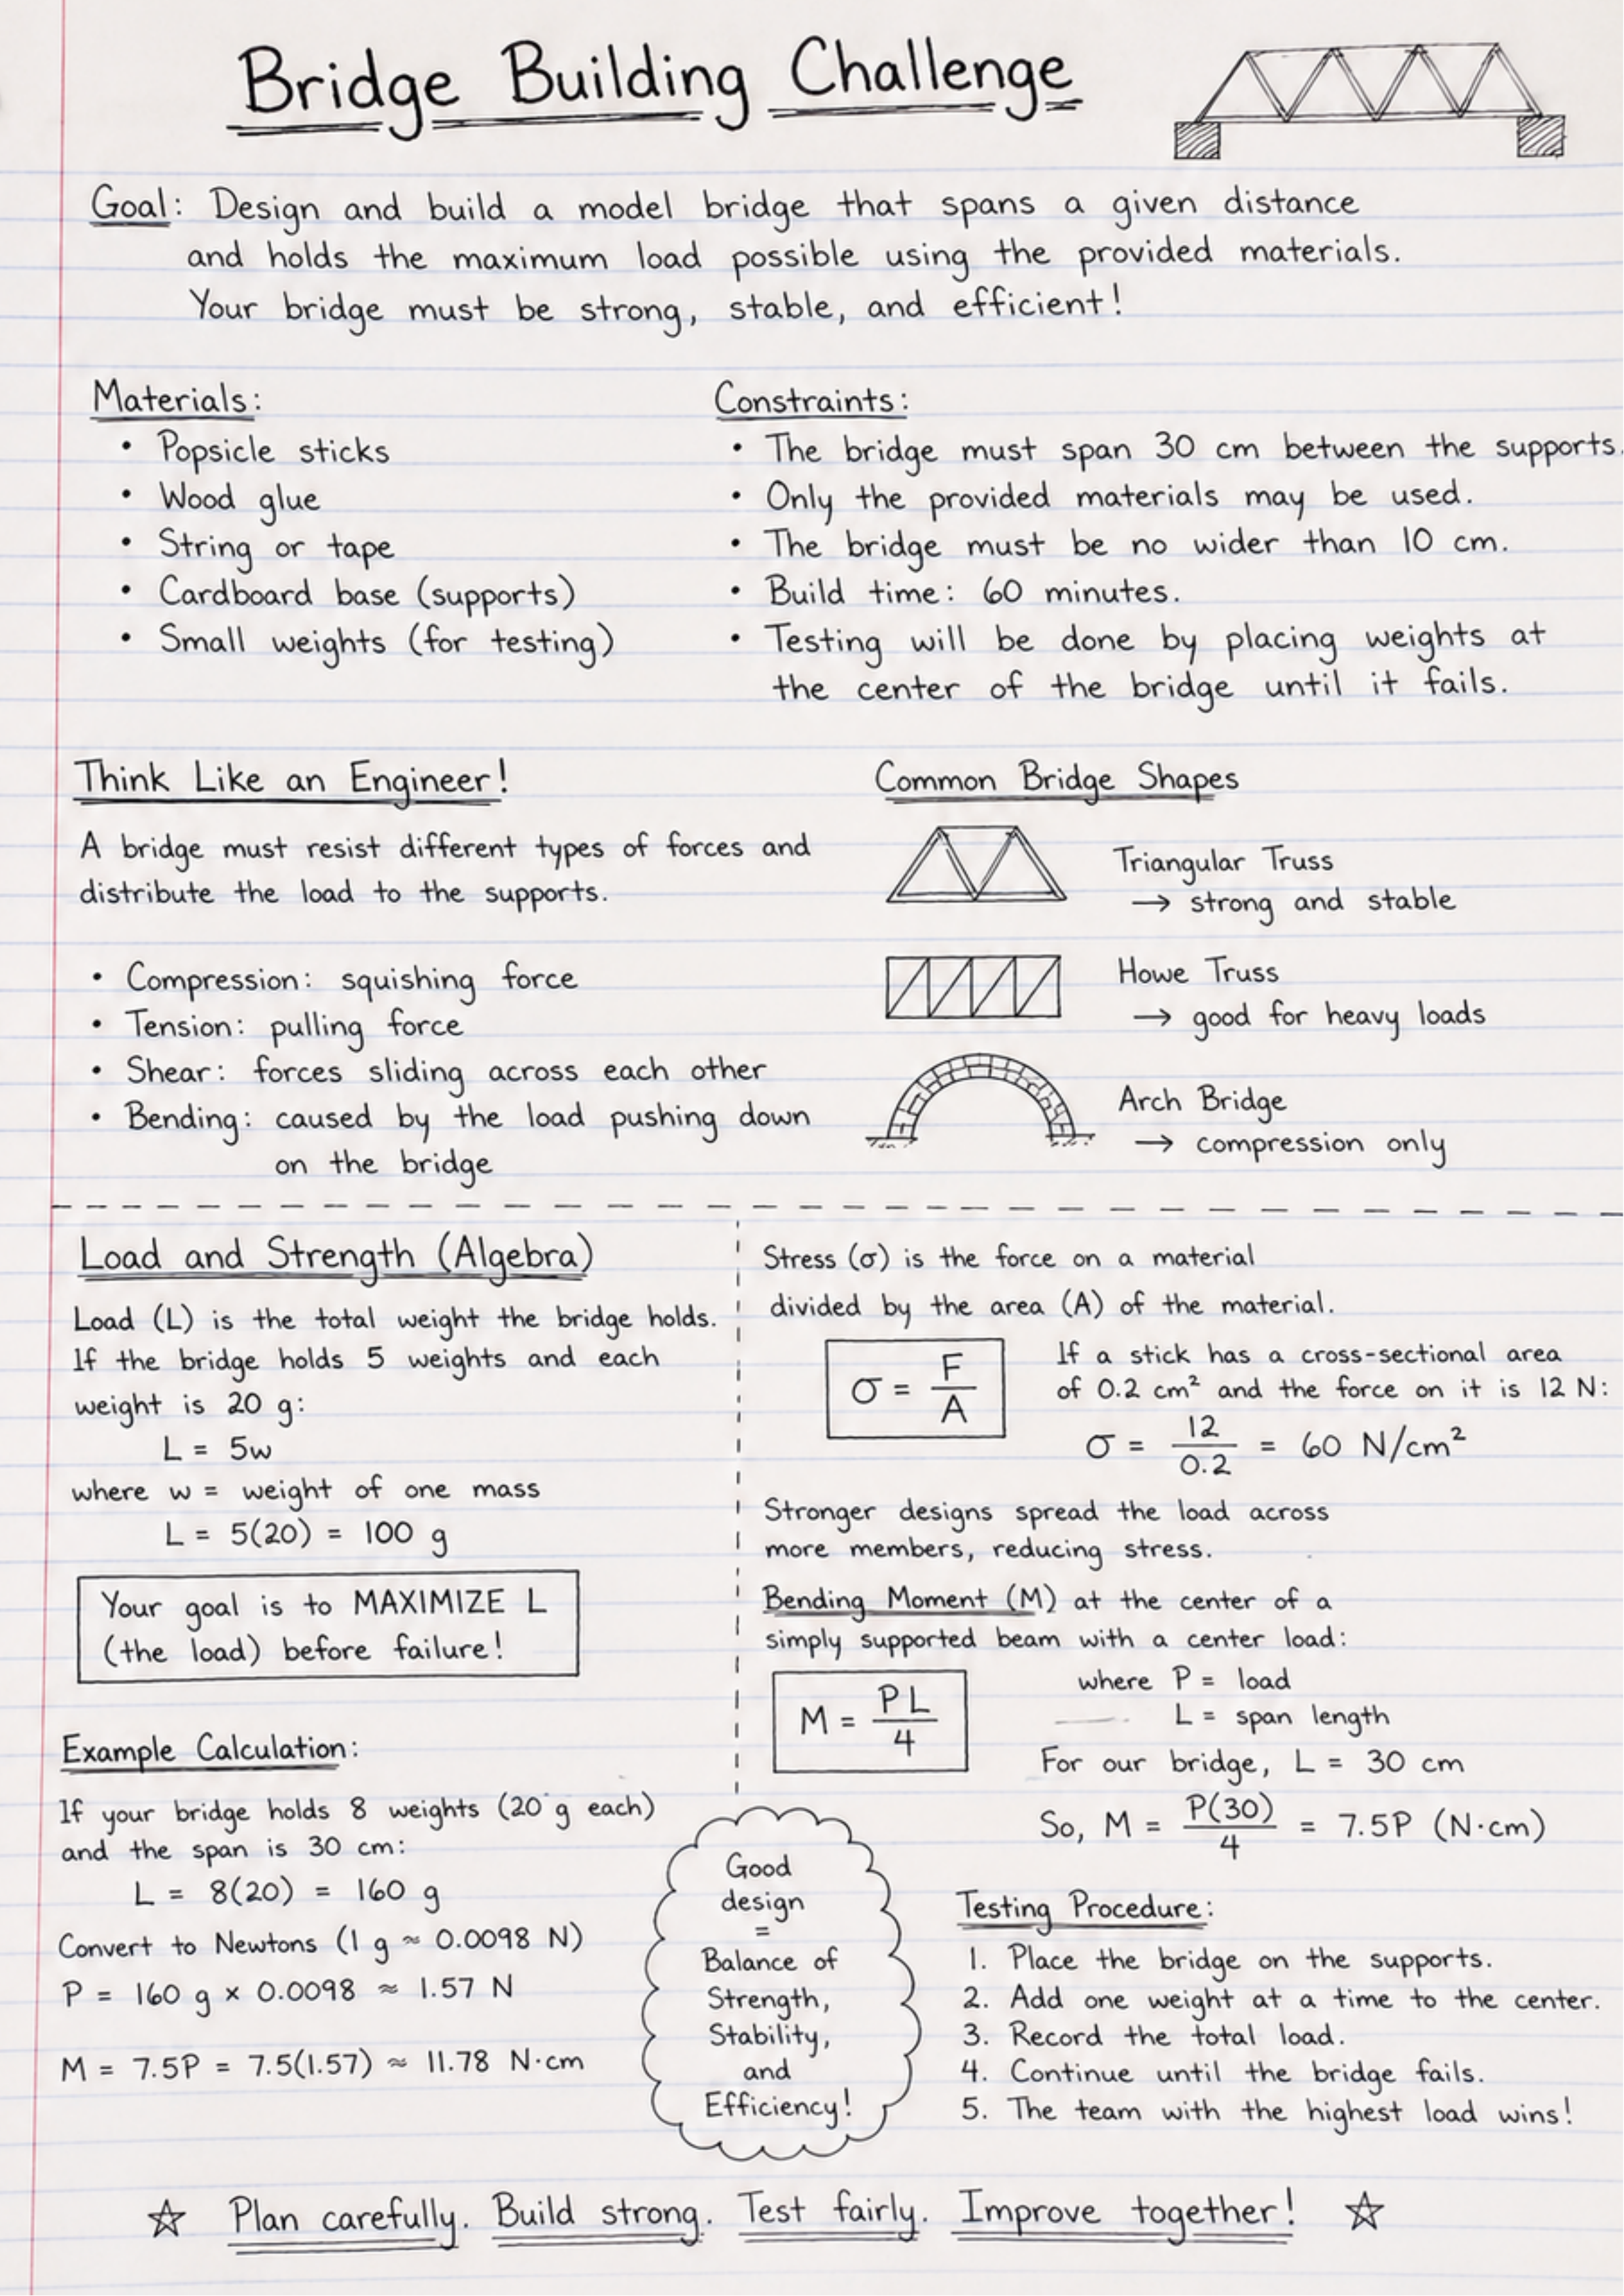 Bridge Building Challenge
Goal: Design and build a model bridge that spans a given distance
and holds the maximum load possible using the provided materials.
Your bridge must be strong, stable, and efficient!
Materials:
• Popsicle sticks
• Wood glue
• String or tape
• Cardboard base (supports)
• Small weights (for testing)
Constraints:
• The bridge must span 30 cm between the supports.
• Only the provided materials may be used.
• The bridge must be no wider than 10 cm.
• Build time: 60 minutes.
• Testing will be done by placing weights at
the center of the bridge until it fails.
Think Like an Engineer!
A bridge must resist different types of forces and
distribute the load to the supports.
• Compression: squishing force
• Tension: pulling force
• Shear: forces sliding across each other
• Bending: caused by the load pushing down
on the bridge
Common Bridge Shapes
Triangular Truss
→ strong and stable
Howe Truss
→ good for heavy loads
Arch Bridge
→ compression only
Load and Strength (Algebra)
Load (L) is the total weight the bridge holds.
If the bridge holds 5 weights and each
weight is 20 g:
L = 5w
where w = weight of one mass
L = 5(20) = 100 g
Your goal is to MAXIMIZE L
(the load) before failure!
Example Calculation:
If your bridge holds 8 weights (20 g each)
and the span is 30 cm:
L = 8(20) = 160 g
Convert to Newtons (1 g ≈ 0.0098 N)
P = 160 g × 0.0098 ≈ 1.57 N
M = 7.5P = 7.5(1.57) ≈ 11.78 N·cm
Stress (σ) is the force on a material
divided by the area (A) of the material.
σ = F/A
If a stick has a cross-sectional area
of 0.2 cm² and the force on it is 12 N:
σ = 12/0.2 = 60 N/cm²
Stronger designs spread the load across
more members, reducing stress.
Bending Moment (M) at the center of a
simply supported beam with a center load:
M = PL/4
where P = load
L = span length
For our bridge, L = 30 cm
So, M = P(30)/4 = 7.5P (N·cm)
Good
design
=
Balance of
Strength,
Stability,
and
Efficiency!
Testing Procedure:
1. Place the bridge on the supports.
2. Add one weight at a time to the center.
3. Record the total load.
4. Continue until the bridge fails.
5. The team with the highest load wins!
☆ Plan carefully. Build strong. Test fairly. Improve together! ☆